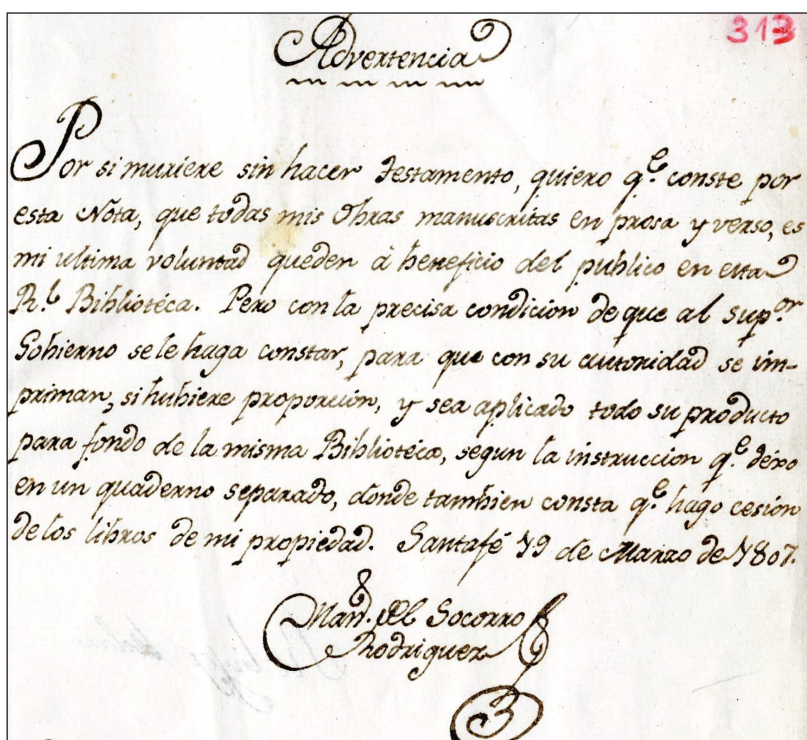 313
Advertencia
Por si muriere sin hacer Testamento, quiero q.e conste por
esta Nota, que todas mis Obras manuscritas en prosa y verso, es
mi ultima voluntad queden à beneficio del publico en esta
R.l Bibliotéca. Pero con la precisa condicion de que al sup.or
Gobierno se le haga constar, para que con su autoridad se im-
priman, si hubiere proporcion, y sea aplicado todo su producto
para fondo de la misma Bibliotéca, segun la instruccion q.e déxo
en un quaderno separado, donde tambien consta q.e hago cesión
de los libros de mi propiedad. Santafé 19 de Marzo de 1807.
Man.l del Socorro
Rodriguez